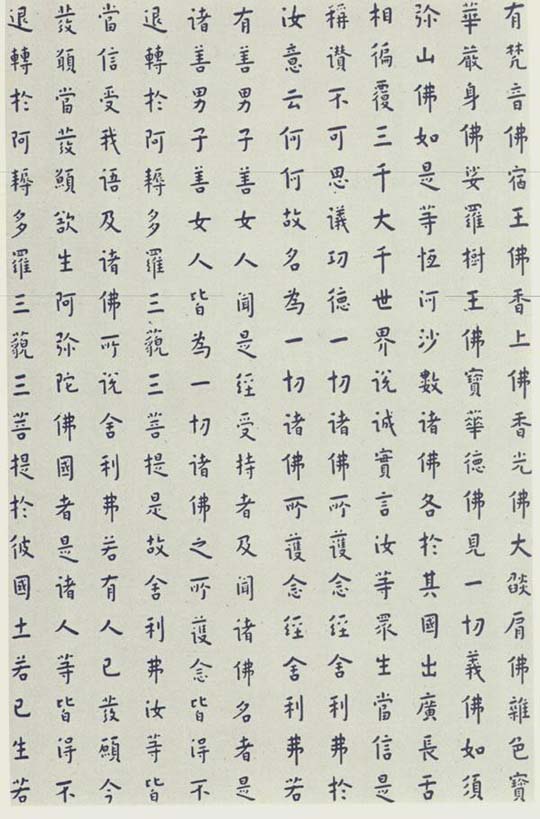 有梵音佛宿王佛香上佛香光佛大燄肩佛雜色寶
華嚴身佛娑羅樹王佛寶華德佛見一切義佛如須
弥山佛如是等恆河沙數諸佛各於其國出廣長舌
相徧覆三千大千世界說誠實言汝等眾生當信是
稱讚不可思議功德一切諸佛所護念經舍利弗於
汝意云何何故名為一切諸佛所護念經舍利弗若
有善男子善女人聞是經受持者及聞諸佛名者是
諸善男子善女人皆為一切諸佛之所護念皆得不
退轉於阿耨多羅三藐三菩提是故舍利弗汝等皆
當信受我語及諸佛所說舍利弗若有人已發願今
發願當發願欲生阿弥陀佛國者是諸人等皆得不
退轉於阿耨多羅三藐三菩提於彼國土若已生若